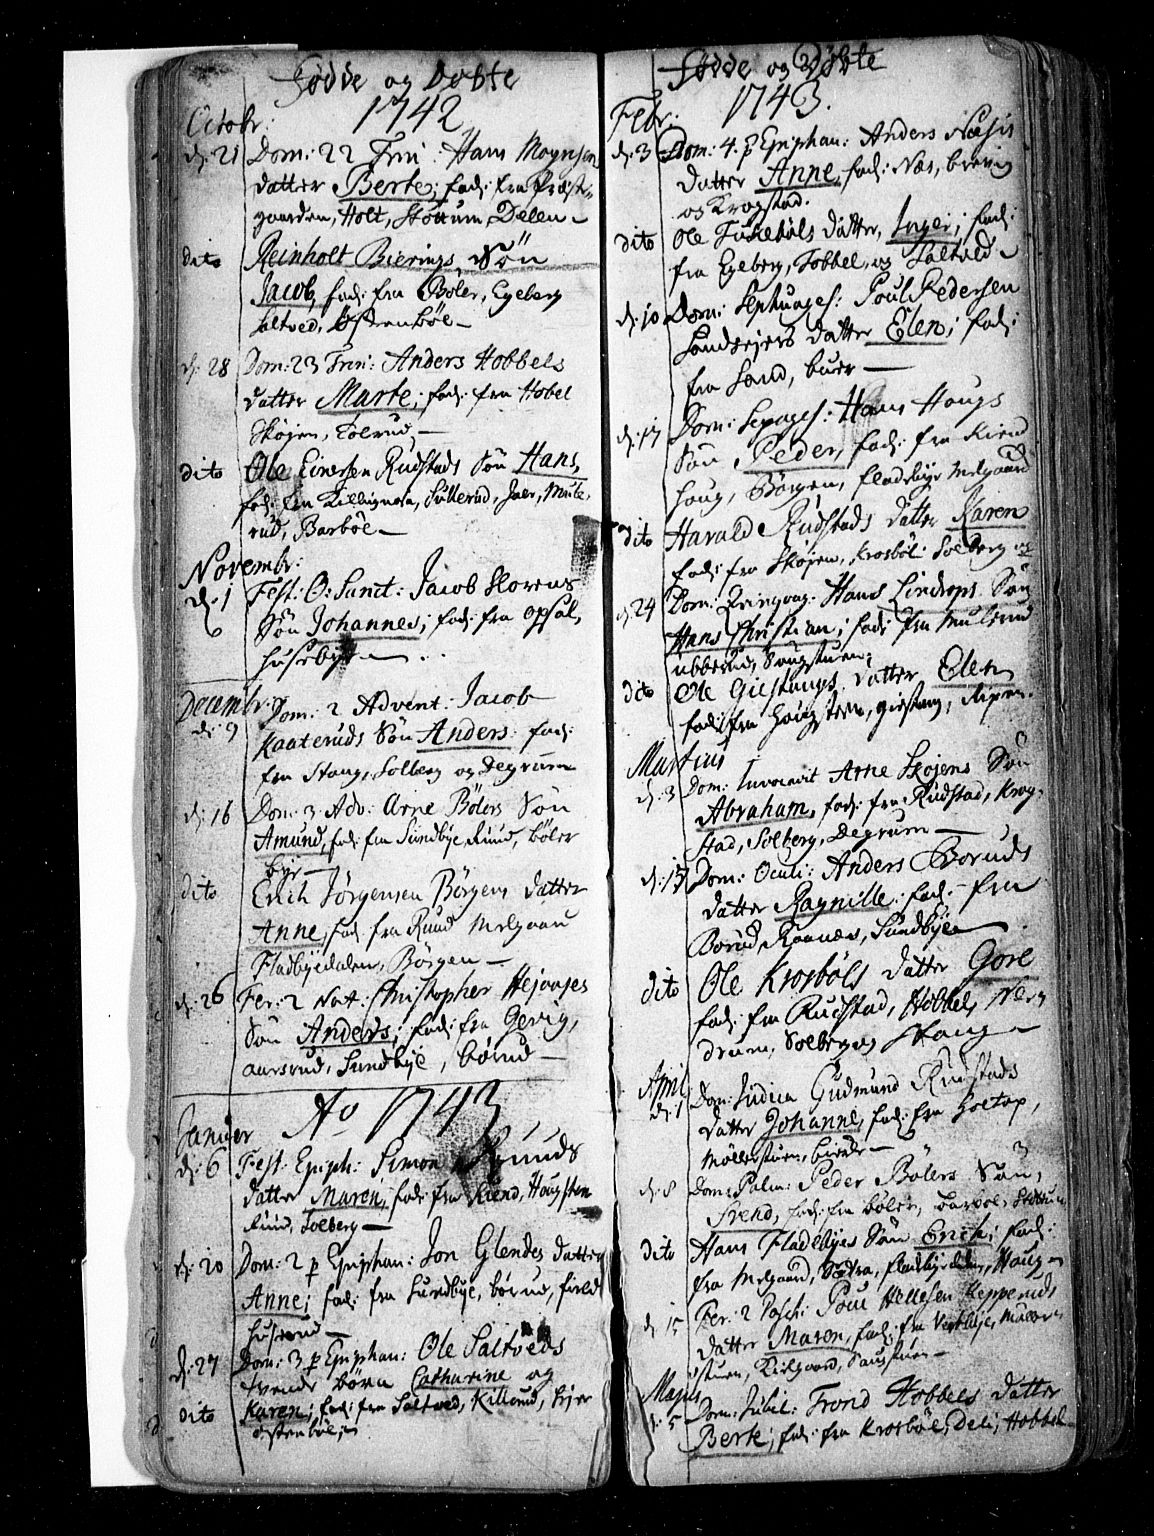 Födde og Dobte
1742
Octobr:
d: 21 Dom: 22 Trin: Hans Moynsens
datter Berte; fad: fra Præste-
gaarden, Holt, Stöttum, Delen
dito Reinholt Bierings Sön
Jacob, fad: fra Böler, Egeberg
Saltved, Østenböl
d: 28 Dom: 23 Trin: Anders Hobbels
datter Marte, fad: fra Hobel
Skøjen, Tolrud
dito Ole Einersen Rudstads Sön Hans,
fad: fra Killingmoen, Sullerud, Jaer, Mule,
rud, Barböl
Novembr:
d: 1 Fest: O: Sanct: Jacob Skovens
Sön Johannes; fad: fra Opsal,
Husebye
Decembr:
d: 9 Dom: 2 Advent: Jacob
Kaateruds Sön Anders: fad:
fra Haug, Solberg og Degrum
d: 16 Dom: 3 Adv: Arne Bölers Sön
Amund, fad: fra Sundbye, Ruud, böler
bye
dito Erich Jörgensen Börgens datter
Anne, fad: fra Ruud Melgaard
Fladbyedalen, Börgen
d: 26 Fer: 2 Nat: Christopher Hejaajes
Sön Anders; fad: fra Gevig,
aarsrud, Sundbye, börud
Ao 1743
Januer
d: 6 Fest: Epiph: Simon Ruuds
datter Maren, fad: fra Kiend, Haugsten
Ruud, Solberg
d: 20 Dom: 2 p Epiphan: Jon Glendes datter
Anne; fad: fra Sundbye, börud, field
huserud
d: 27 Dom: 3 p Epiphan: Ole Saltveds
tvende börn Catharine og
dito Karen; fad: fra Saltved, Killerud, hier
östenböl;
Födde og Döbte
1743.
Febr:
d: 3 Dom: 4. p Epiphan: Anders Næsis
datter Anne, fad: Næs, brevig
og Krogstad.
dito Ole Tuseböls datter, Inger; fad:
fra Egeberg, Hobbel, og Saltved
d: 10 Dom: Septuages: Poul Pedersen
Sandsejers datter Elen; fad:
fra Sand, buer
d: 17 Dom: Sexages: Hans Haugs
Sön Peder, fad: fra Kiend
Haug, Börgen, Fladebye Melgaard
dito Harald Rudstads datter Karen
fad: fra Skøjen, Krosböl: Solberg og
d: 24 Dom: Qvinqvag: Hans Lindrops Sön
Hans Christian; fad: fra Mulerud
ubberud, Saugstuen;
dito Ole Giestangs datter Elen
fad: fra Haugsteen, giestang, Ripen.
Martius
d: 3 Dom: Invocavit Arne Skøjens Sön
Abraham, fad: fra Rudstad, Krog-
stad, Solberg, Degrum
d: 17 Dom: Oculi: Anders Boruds
datter Ragnille: fad: fra
Borud, Raanaas, Sundbye
dito Ole Krosböls datter Gore
fad: fra Rudstad, Hobbel, Ner,
drum, Solberg og Haug
April
d: 1 Dom: Judica Gudmund Rudstads
datter Johanne, fad: fra Hoetop,
Möllerstuen, biende
d: 8 Dom: Palm: Peder Bölers Sön,
Svend, fad: fra böler, barböl, Stöttum
dito Hans Fladebyes Sön Erich; fad:
fra Melgaard, Södra, fladbyedalen, Haug
d: 15 Fer: 2 Pasch: Poul Hellesen Kepperuds
datter Maren, fad: fra Vestbye, Möller-
stuen, Kirlgaard, Saugstuen
Majus
d: 5 Dom: Jubil: Trond Hobbels datter
Berte; fad: fra Krosböl, Deli, Hobbel